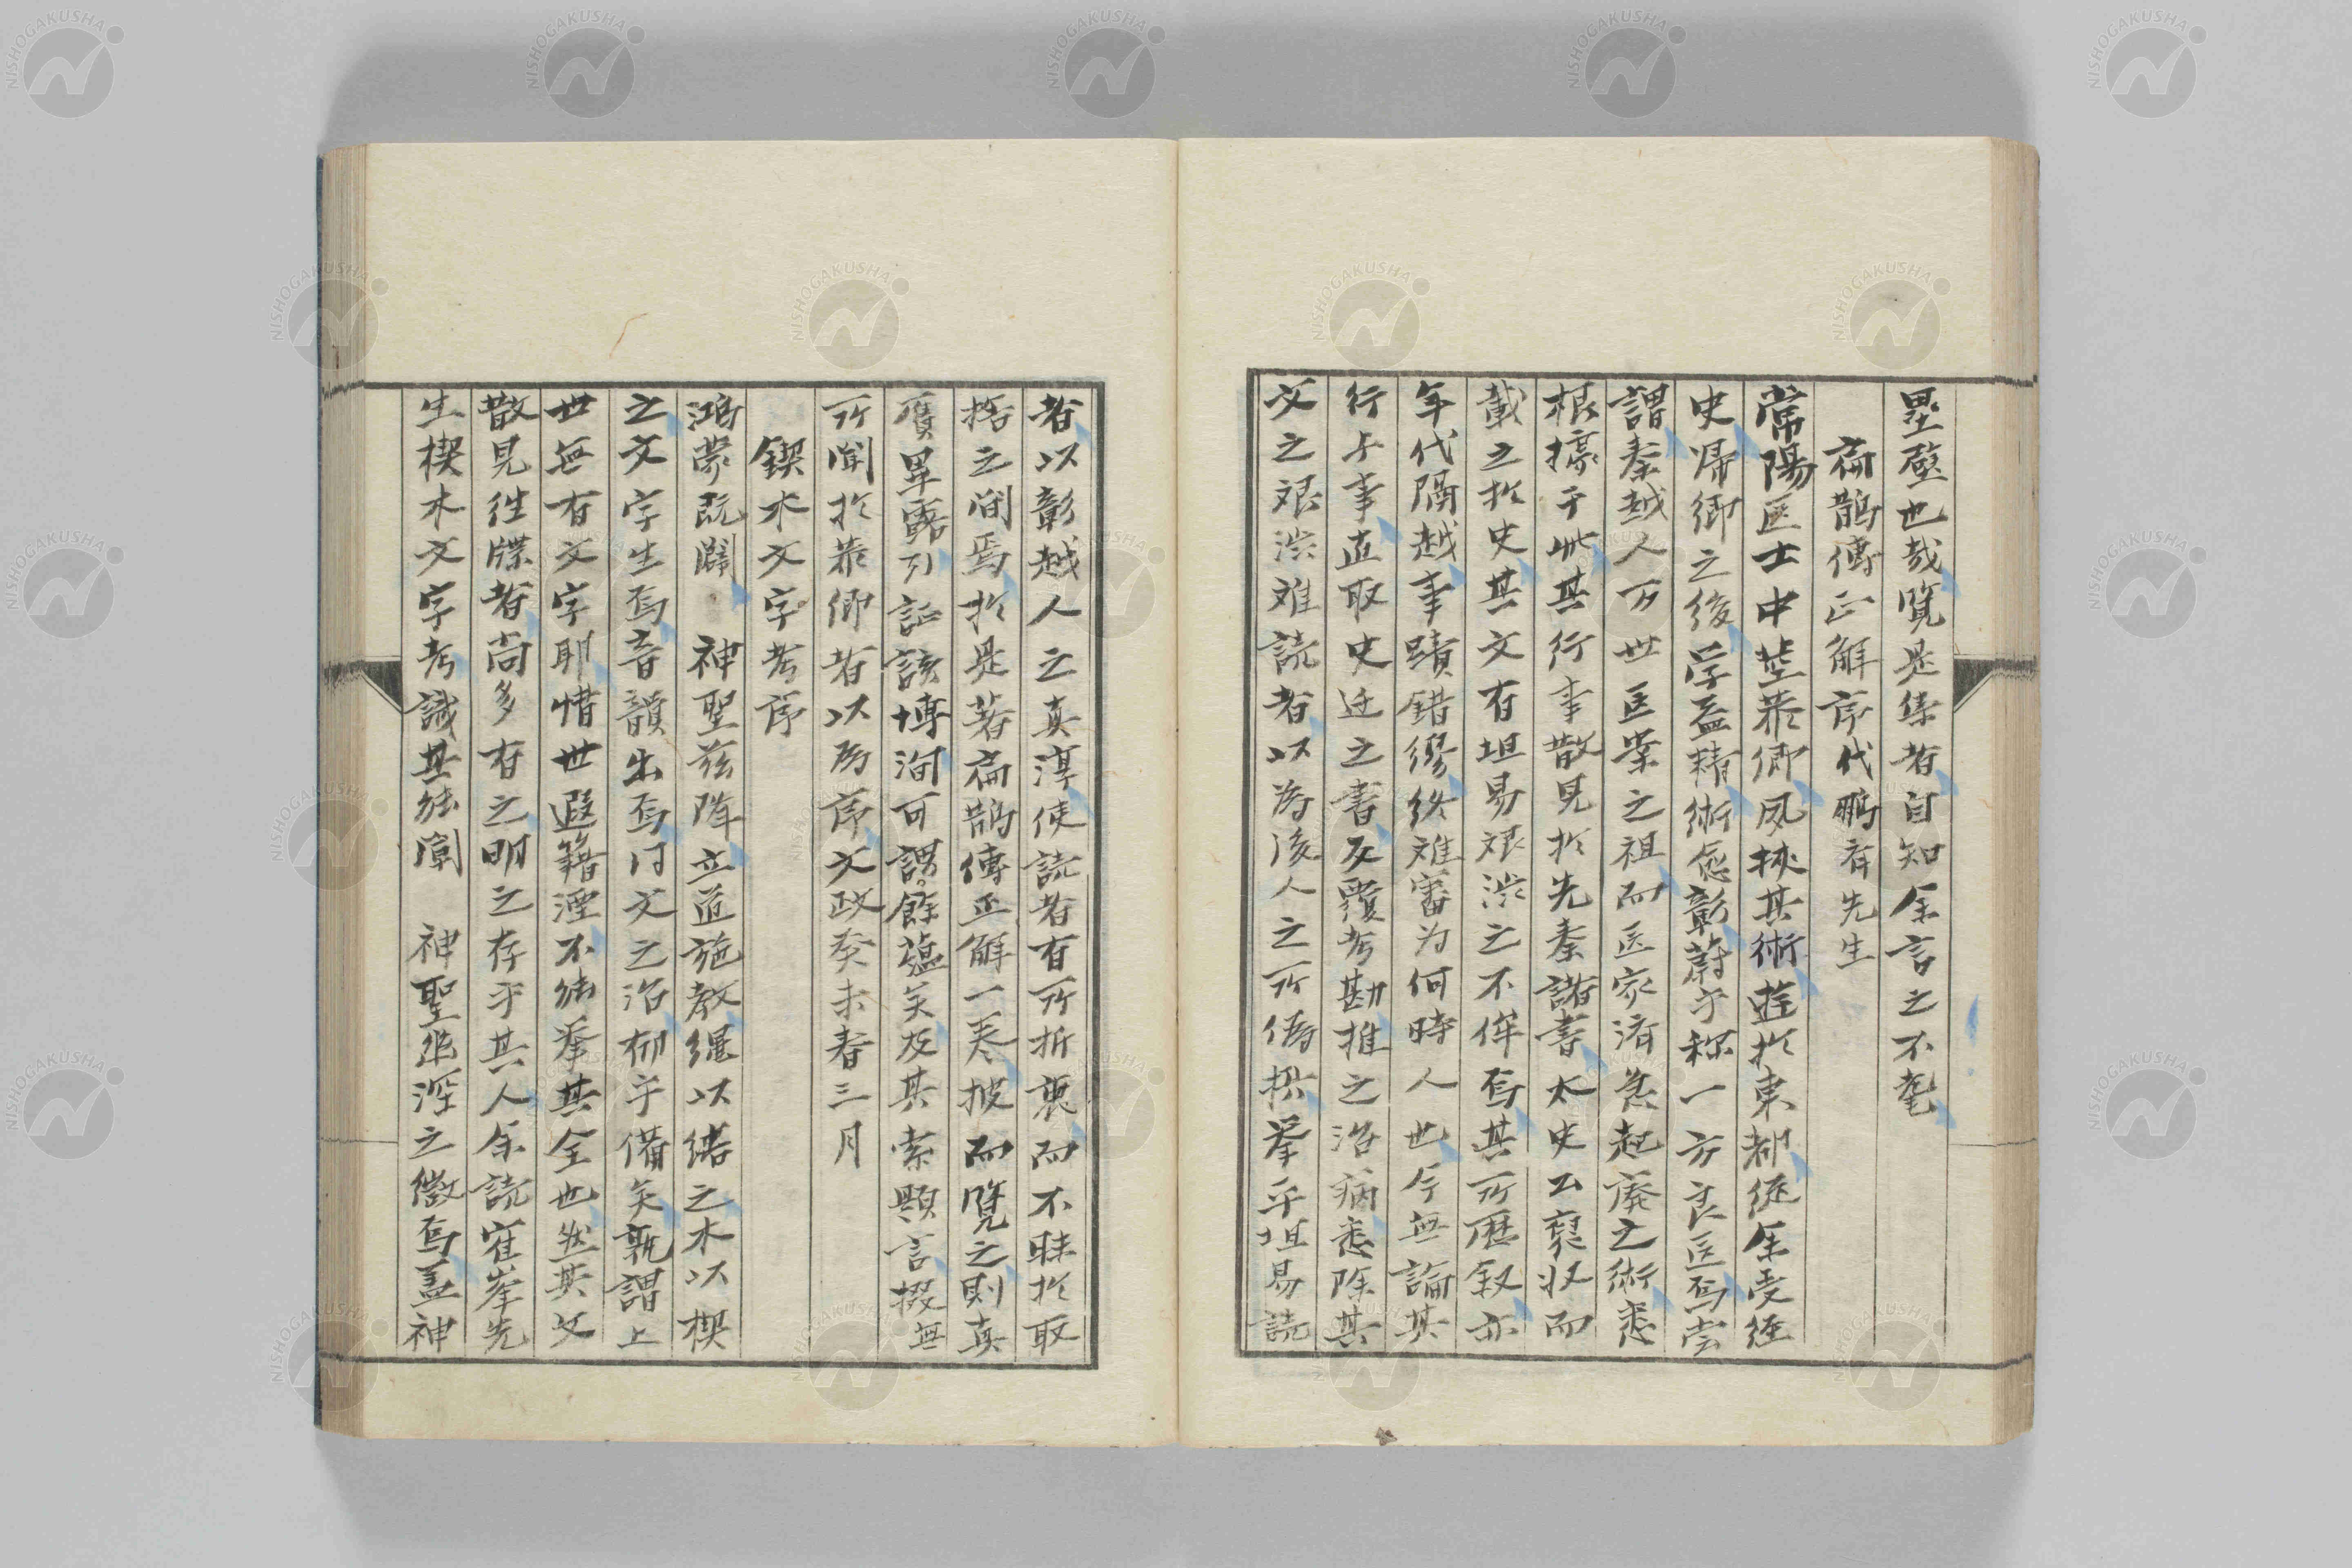 塁壁也哉覧是集者自知余言之不耄
扁鵲傳正解序代鵬斎先生
常陽医士中茎恭卿夙挾其術遊於東都従余受経
史帰郷之後学益精術愈彰蔚乎称一方良医焉嘗
謂秦越人万世医業之祖而医家済急起廃之術悉
根據于此其行事散見於先秦諸書太史公裒収而
載之於史其文有坦易艱渋之不侔焉其所歴叙亦
年代隔越事蹟錯繆終难審为何時人也今無論其
行与事直取史迁之書反覆考勘推之治病悉除其
文之艱渋难読者以為後人之所偽撰挙乎坦易読
者以彰越人之真淳使読者有所折衷而不昧於取
捨之间焉於是著扁鵲傳正解一巻披而覧之則真
贋畢露引証該博洵可謂餘蘊矣及其索題言掇無
所聞於恭卿者以為序文政癸未春三月
鍥木文字考序
鴻蒙既闢 神聖茲降立道施教縄以结之木以楔
之文字生焉音韻出焉门文之治郁乎備矣孰謂上
世無有文字耶惜世遐籍湮不能挙其全也然其文
散見往牒者尚多有之明之存乎其人余読寉峯先
生楔木文字考誠其能闡 神聖幽深之徴焉盖神